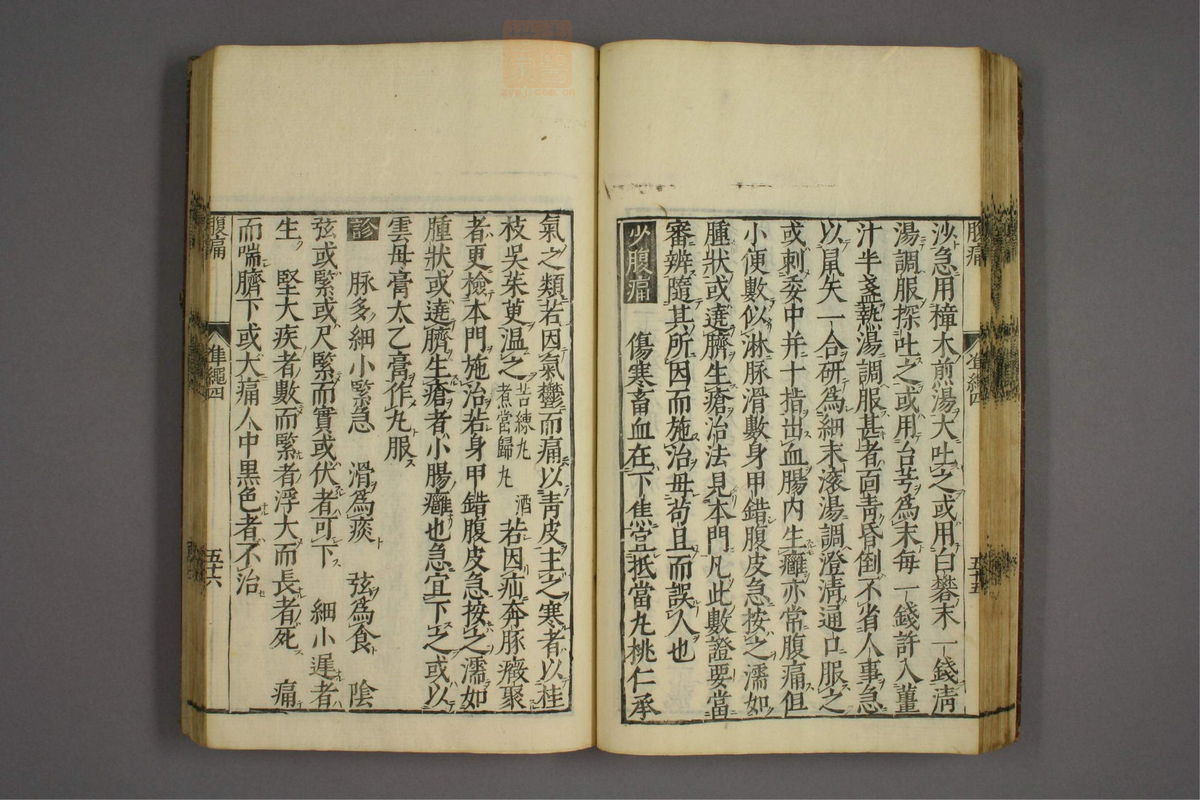 腹痛
準繩四
五十五
沙急用樟木煎湯大吐之或用白礬末一錢清
湯調服探吐之或用台芎爲末每一錢許入薑
汁半盞熱湯調服甚者面靑昏倒不省人事急
以鼠矢一合研爲細末滚湯調澄淸通口服之
或刺委中并十指出血腸内生癰亦常腹痛但
小便數似淋脉滑數身甲錯腹皮急按之濡如
腫狀或遶臍生瘡治法見本門凡此數證要當
審辨隨其所因而施治毋苟且而誤人也
少腹痛 傷寒畜血在下焦宜抵當丸桃仁承
氣之類若因氣鬱而痛以靑皮主之寒者以桂
枝吳茱萸温之苦練丸酒煮當歸丸若因疝奔豚癥聚
者更檢本門施治若身甲錯腹皮急按之濡如
腫狀或遶臍生瘡者小腸癰也急宜下之或以
雲母膏太乙膏作丸服
診 脉多細小緊急 滑爲痰 弦爲食 陰
弦或緊或尺緊而實或伏者可下 細小遲者
生 堅大疾者數而緊者浮大而長者死 痛
而喘臍下或大痛人中黒色者不治
腹痛
準繩四
五十六